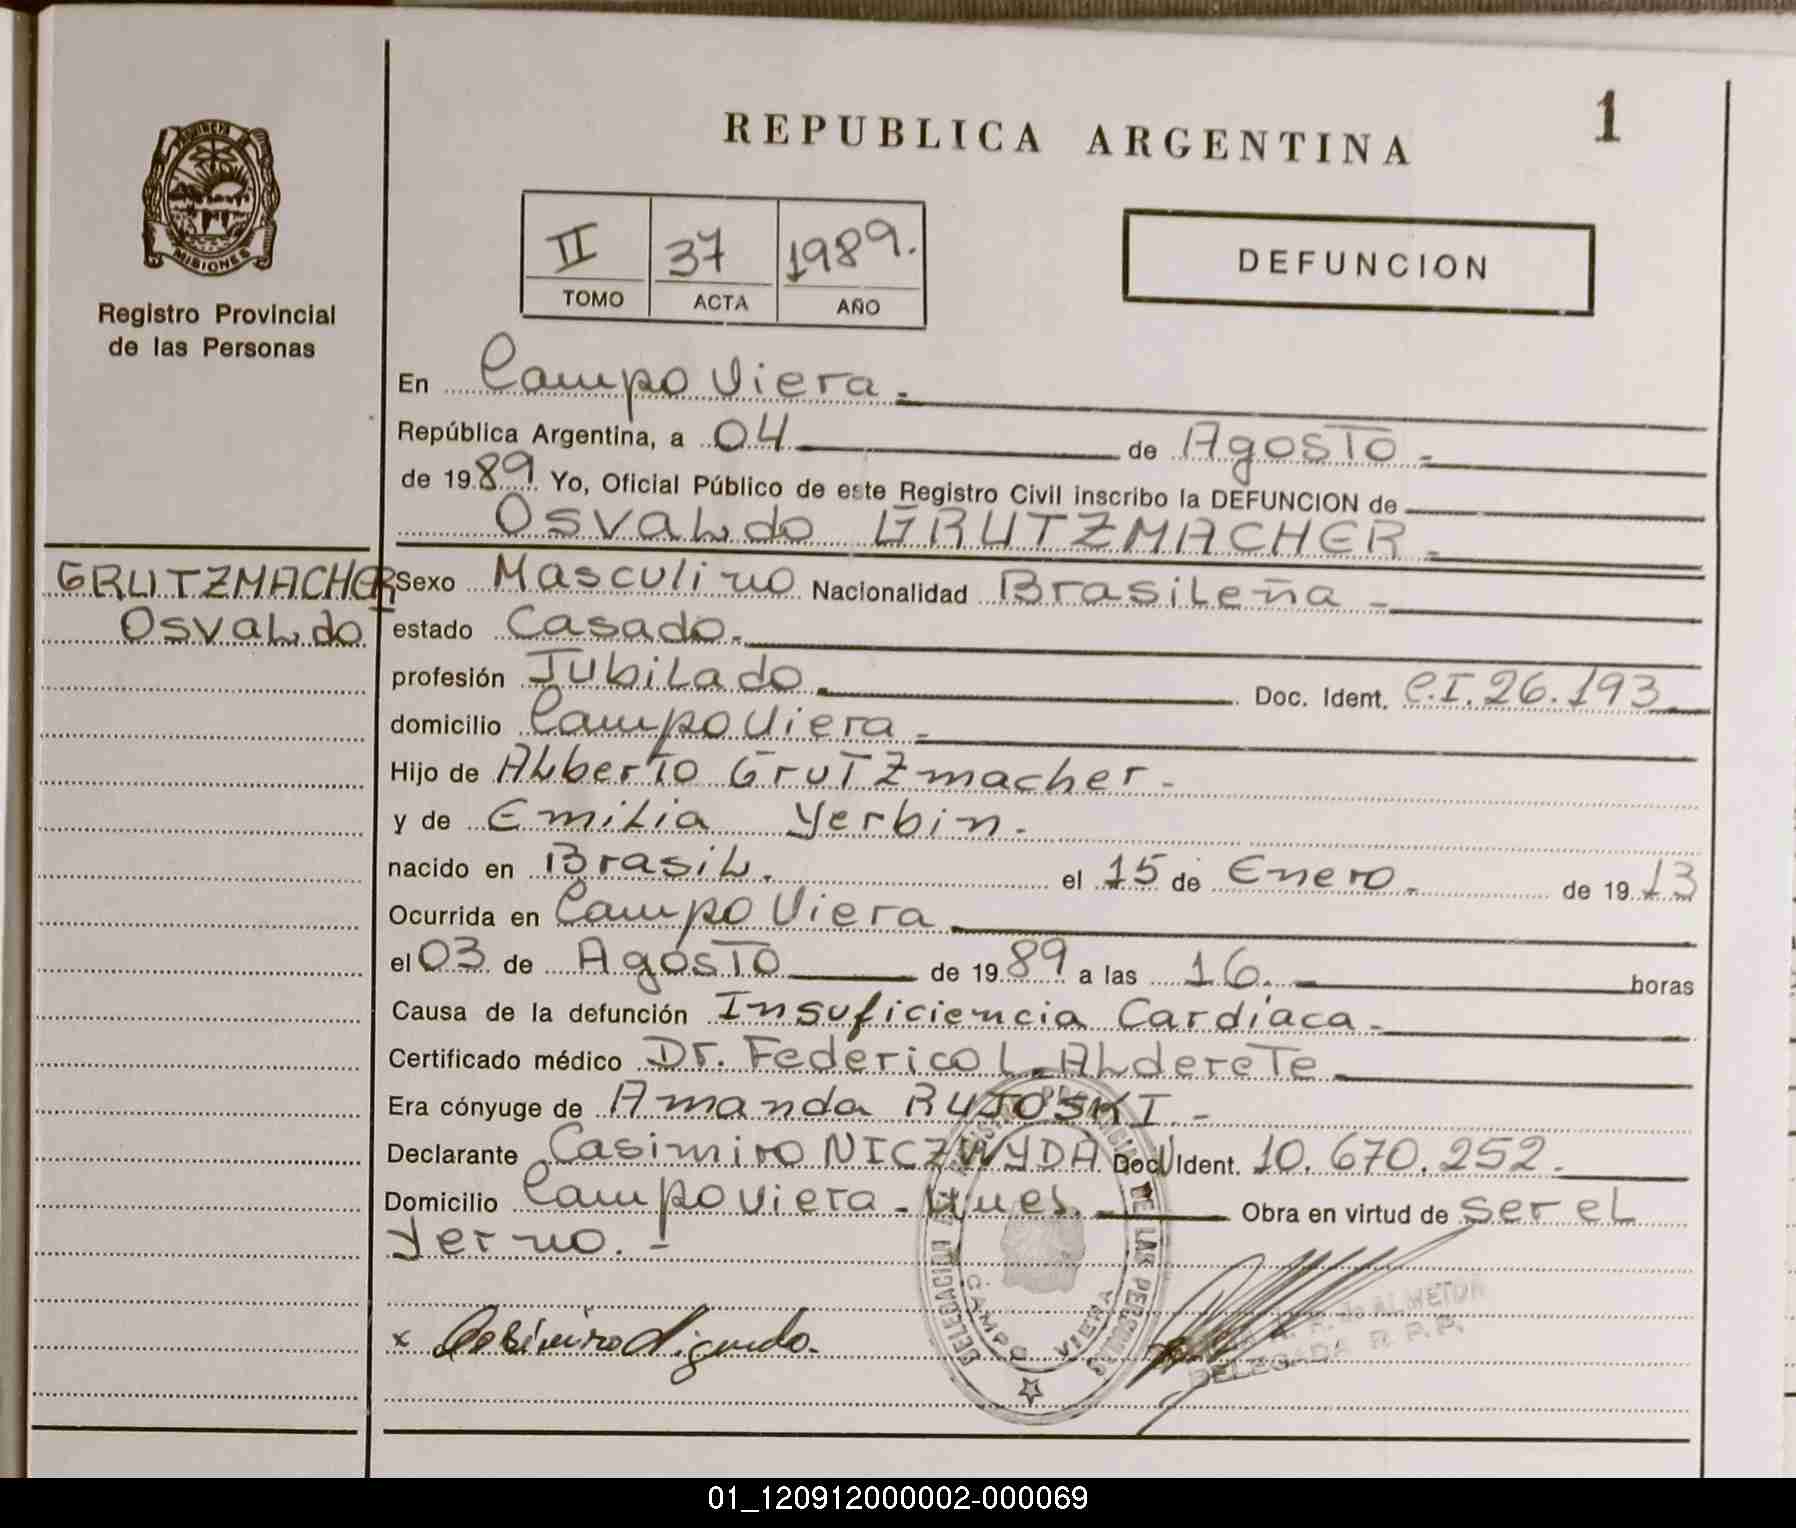 REPUBLICA ARGENTINA
1
PROVINCIA
MISIONES
Registro Provincial
de las Personas
II 37 1989.
TOMO ACTA AÑO
DEFUNCION
En Campo Viera.
República Argentina, a 04 de Agosto -
de 1989. Yo, Oficial Público de este Registro Civil inscribo la DEFUNCION de
Osvaldo GRUTZMACHER -
GRUTZMACHER
Osvaldo
Sexo Masculino Nacionalidad Brasileña -
estado Casado.
profesión Jubilado. Doc. Ident. C.I. 26.193
domicilio Campo Viera -
Hijo de Alberto Grutzmacher -
y de Emilia Yerbin.
nacido en Brasil. el 15 de Enero. de 1913
Ocurrida en Campo Viera
el 03 de Agosto de 1989 a las 16. horas
Causa de la defunción Insuficiencia Cardíaca -
Certificado médico Dr. Federico L. Alderete
Era cónyuge de Amanda RUJOSKI -
Declarante Casimiro NICZWYDA Doc. Ident. 10.670.252.
Domicilio Campo Viera - Mnes. Obra en virtud de ser el
Yerno. -
x Casimiro
DELEGACION REGISTRO PROVINCIAL DE LAS PERSONAS
CAMPO VIERA
ALMEIDA
DELEGADA R.P.P.
01_120912000002-000069